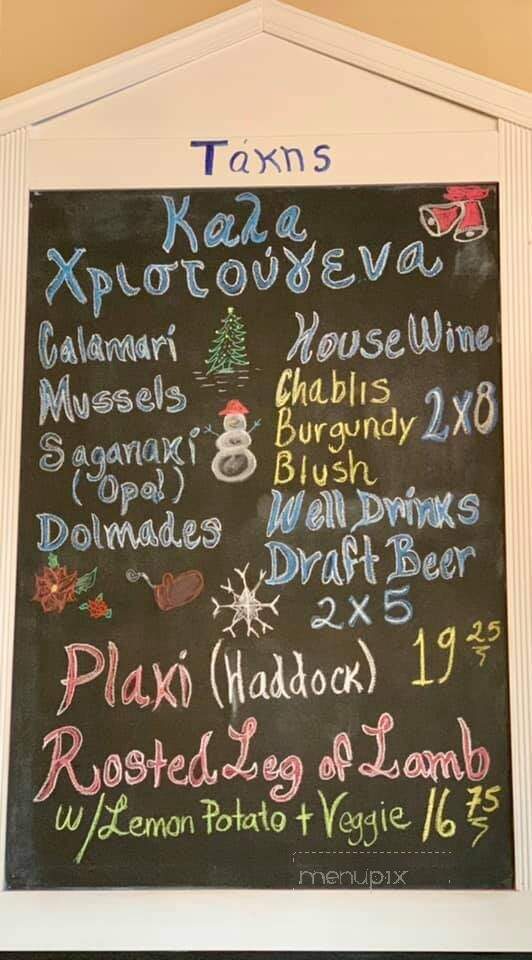 Τάκης
Καλα
Χριστούγενα
Calamari
Mussels
Saganaki
(Opa!)
Dolmades
House Wine
Chablis
Burgundy 2x8
Blush
Well Drinks
Draft Beer
2x5
Plaki (Haddock) 19 25
Rosted Leg of Lamb
w/Lemon Potato + Veggie 16 75
menupix